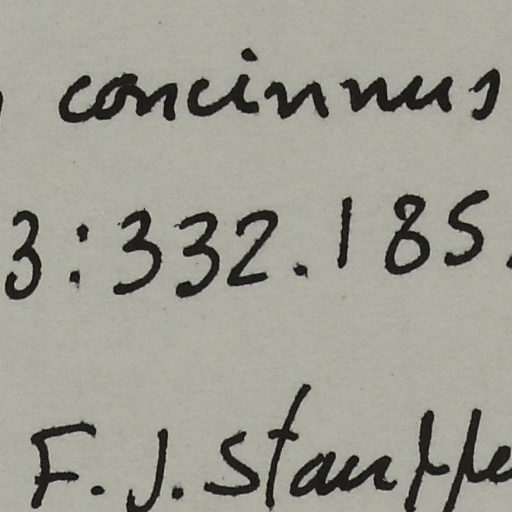 concinnus
3:332.185.
F. J. Stauffe